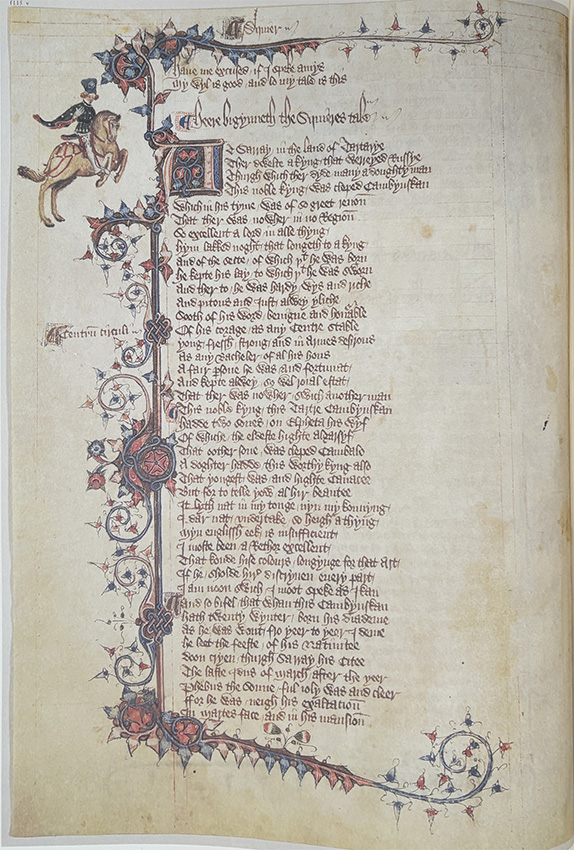 Squier
Have me excused / if I speke amys
My wyl is good / and lo my tale is this
Heere bigynneth the Squieres tale
At Sarray in the land of Tartarye
Ther dwelte a kyng that werreyed Russye
Thurgh which ther dyde many a doughty man
This noble kyng was cleped Cambynskan
Which in his tyme was of so greet renon
That ther was nowher in no Region
So excellent a lord in alle thyng
Hym lakked noght that longeth to a kyng
And of the secte of which þt he was born
He kepte his lay to which þt he was sworn
And ther to he was hardy wys and riche
And pitous and Iust alwey yliche
Sooth of his word benigne and honrable
Of his corage as any Centre stable
Centrum circuli
Yong fressh strong and in Armes desirous
As any Bacheler of al his hous
A fair psone he was and fortunat
And kepte alwey so wel roial estat
That ther was nowher swich another man
This noble kyng this Tartre Cambynskan
Hadde two sones on Elpheta his wyf
Of whiche the eldeste highte Algarsyf
That oother sone was cleped Cambalo
A doghter hadde this worthy kyng also
That yongest was and highte Canacee
But for to telle yow al hir beautee
It lyth nat in my tonge nyn my konnyng
I dar nat undertake so heigh a thyng
Myn englissh eek is insufficient
It moste been a Rethor excellent
That koude hise colours longynge for that Art
If he sholde hire discryuen euery part
I am noon swich I moot speke as I kan
And so bifel that whan this Cambynskan
Hath twenty wynter born his diademe
As he was wont fro yeer to yeer I deme
He leet the feeste of his Natiuitee
Doon cryen thurgh Sarray his Citee
The laste Idus of March after the yeer
Phebus the sonne ful ioly was and cleer
For he was neigh his exaltacion
In Martes face and in his mansion